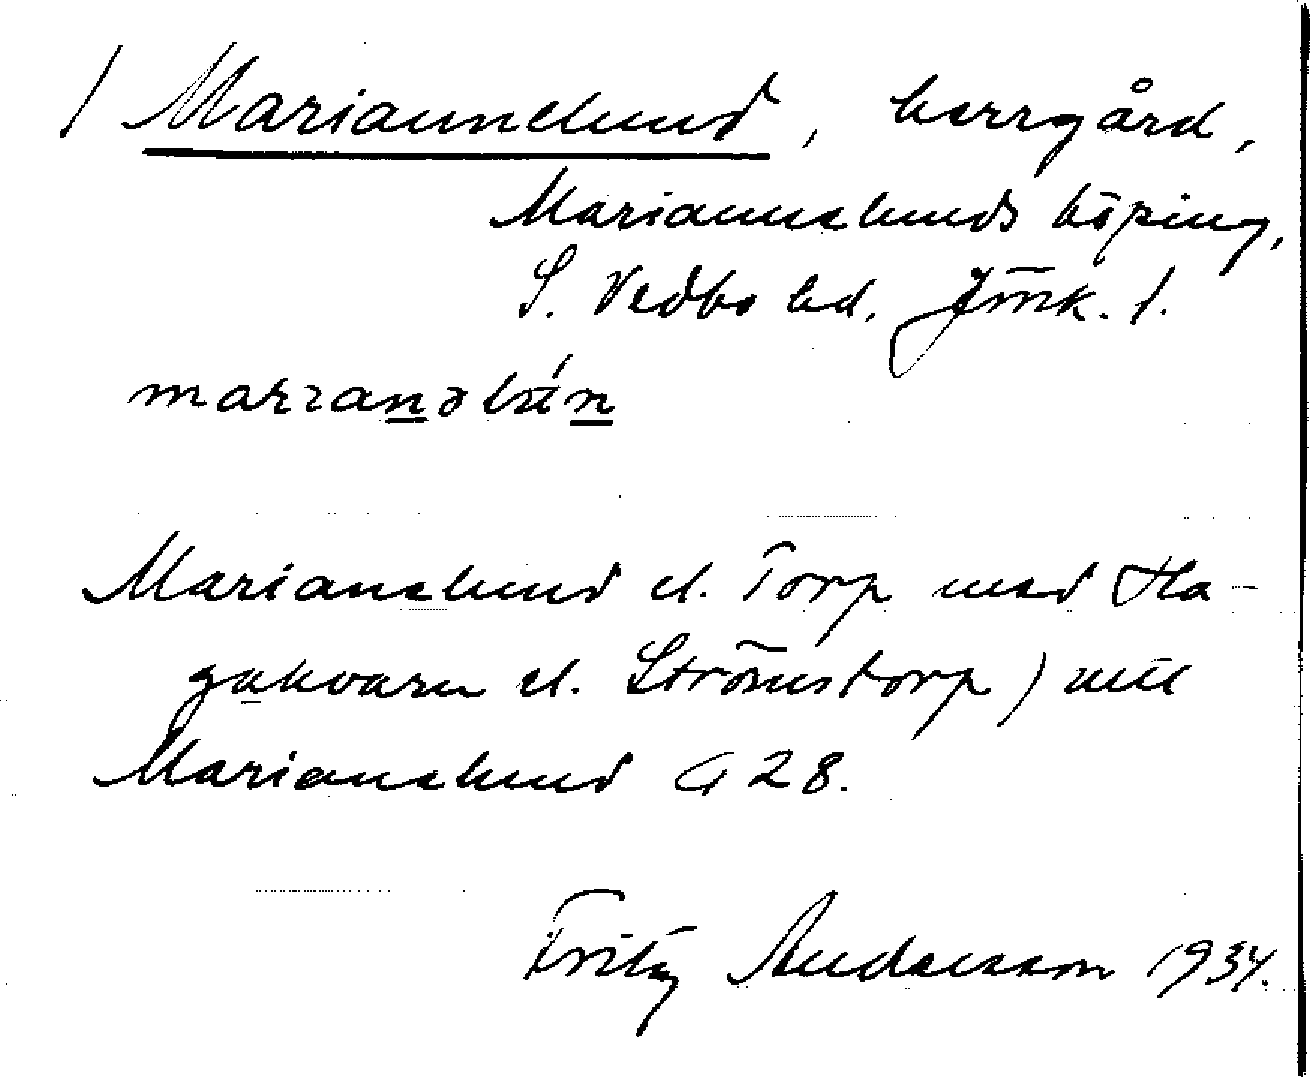 / Mariannelund, herrgård,
Mariannelunds köping,
S. Vedbo hd. Jönk. l.
Marianelund el. Torp med Ha-
gakvarn el. Strömstorp) utill
Marianelund G 28.
Fritz Andersson 1934.